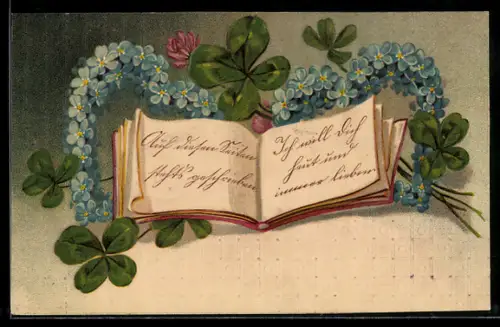 Auf diesen Seiten
stehts geschrieben
Ich will Dich
heut und
immer lieben.